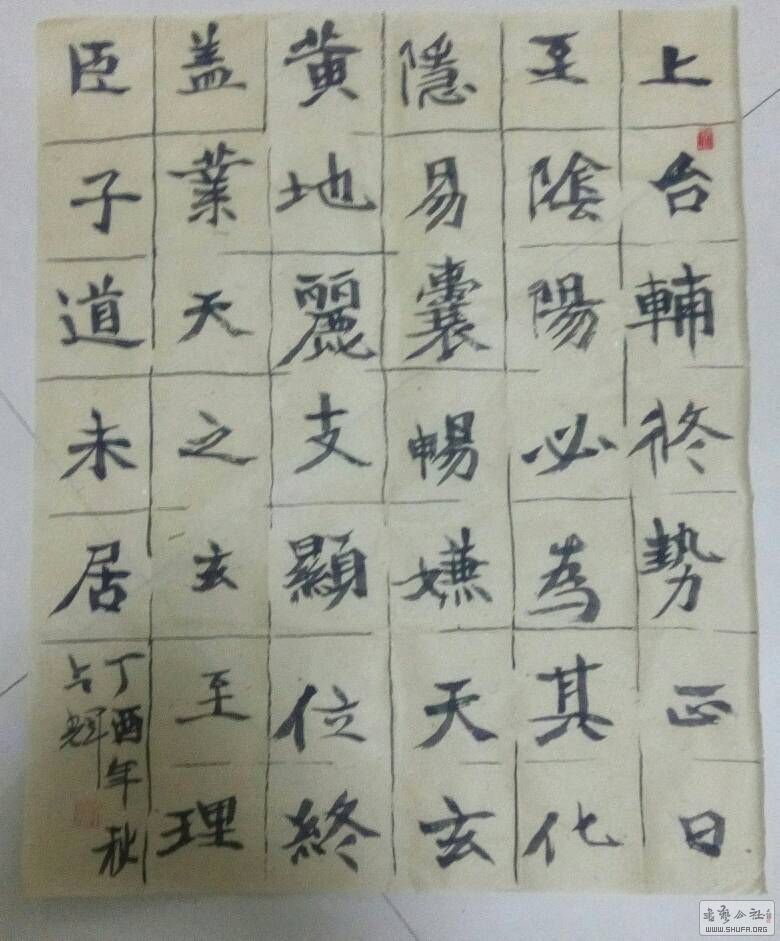 上台輔終勢正日
至陰陽必為其化
隱易囊暢嫌天玄
黃地麗支顯位終
盖業天之玄至理
臣子道未居
丁酉年秋
占輝
書藝公社
WWW.SHUFA.ORG